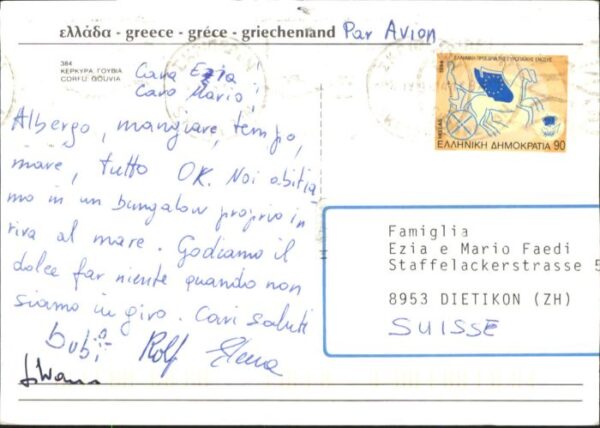 ελλάδα - greece - gréce - griechenland Par Avion
384
ΚΕΡΚΥΡΑ, ΓΟΥΒΙΑ
CORFU, GOUVIA
Cara Ezia!
Caro Mario!
Albergo, mangiare, tempo,
mare, tutto OK. Noi abitia-
mo in un bungalow proprio in
riva al mare. Godiamo il
dolce far niente quando non
siamo in giro. Cari saluti
Bubi Rolf Elena
ΕΛΛΗΝΙΚΗ ΠΡΟΕΔΡΙΑ ΤΗΣ ΕΥΡΩΠΑΪΚΗΣ ΕΝΩΣΗΣ
ΕΛΛΑΣ
ΕΛΛΗΝΙΚΗ ΔΗΜΟΚΡΑΤΙΑ 90
Famiglia
Ezia e Mario Faedi
Staffelackerstrasse 5
8953 DIETIKON (ZH)
SUISSE